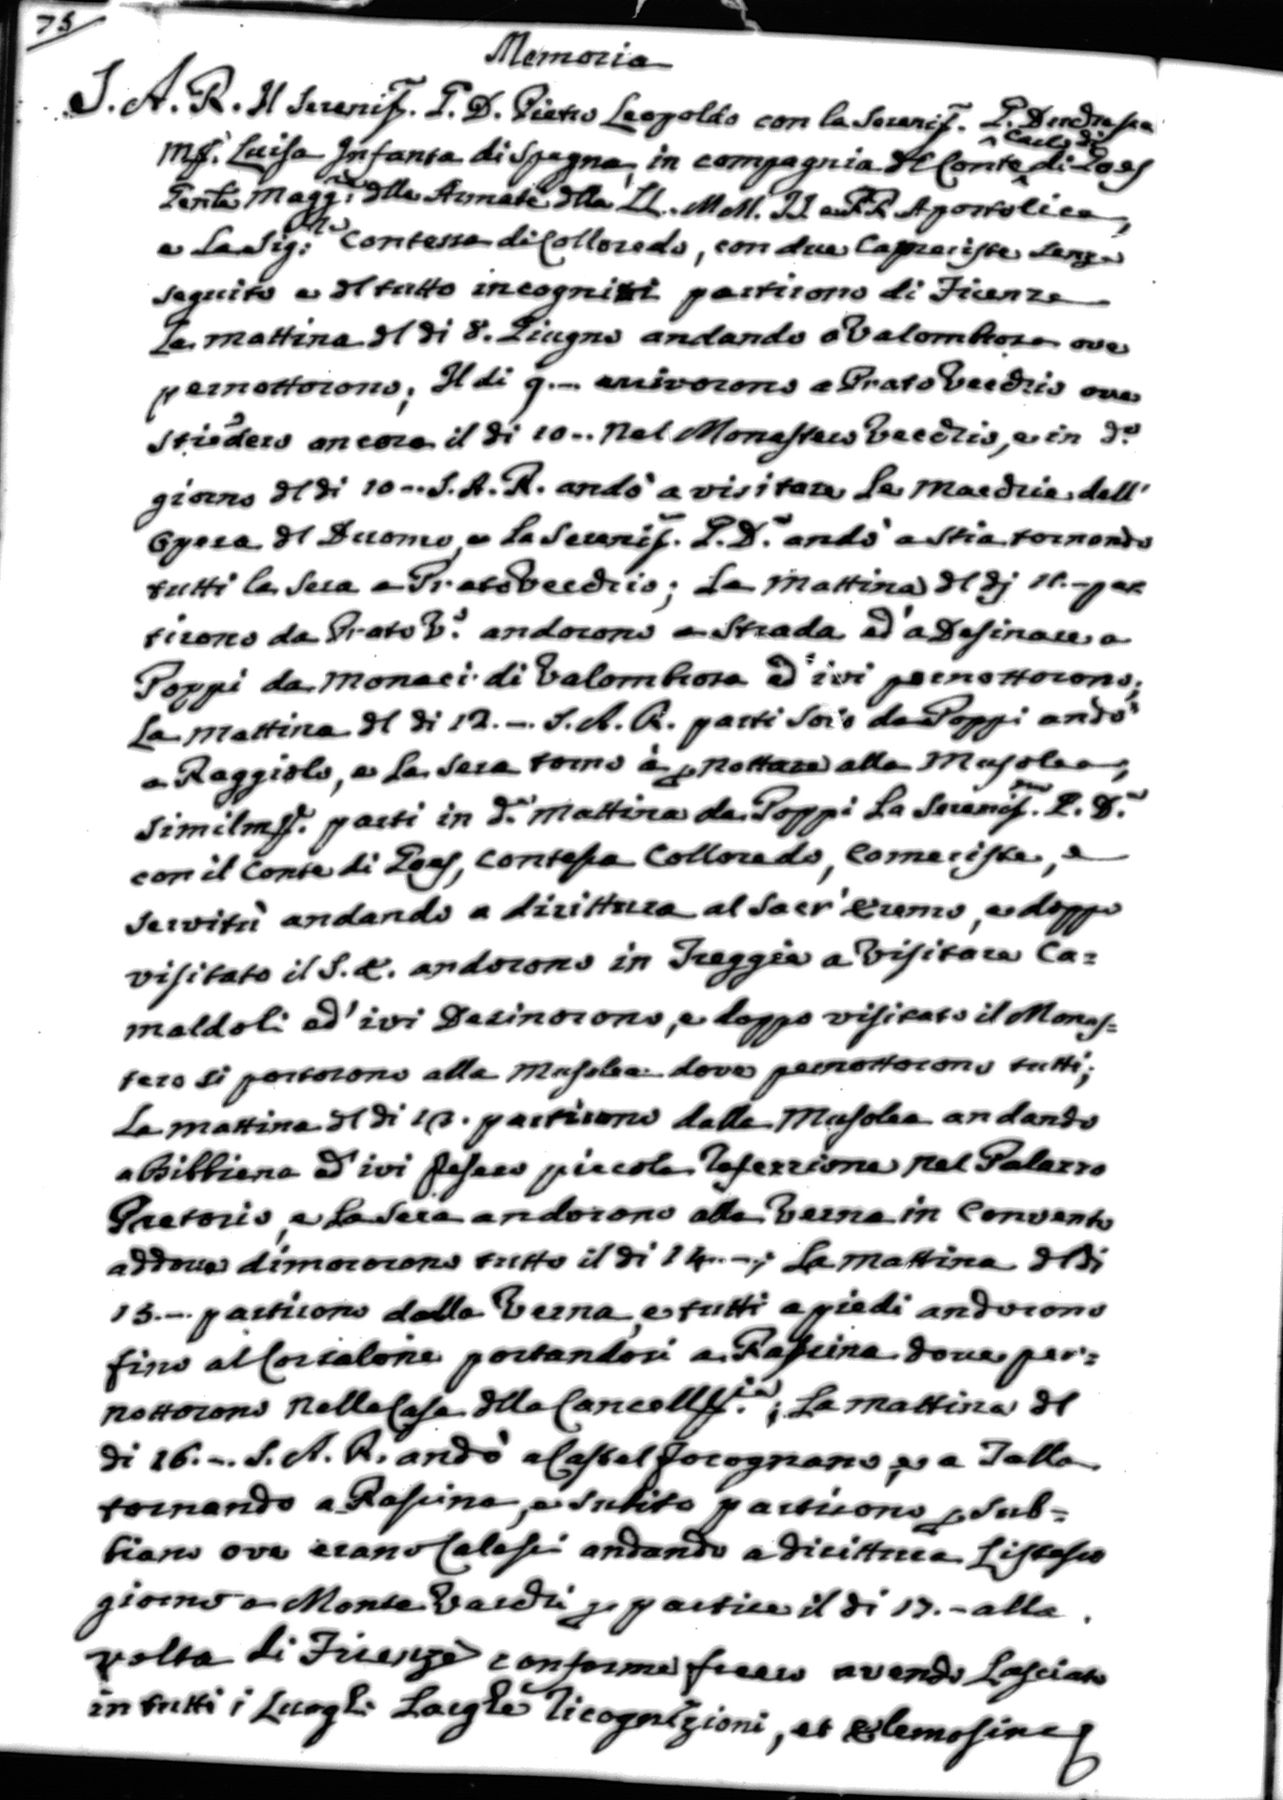 75
Memoria
S. A. R. Il Sereniss. G. D. Pietro Leopoldo con la Sereniss. G. Duchessa
M. Luisa Infanta di Spagna, in compagnia del Conte Carlo di Goes
Tente Magg. della Armate della LL. MM. II e RR Apostolica,
e La Sig.ra Contessa di Colloredo, con due Camreriste senza
seguito e del tutto incogniti partirono di Firenze
La mattina del di 8. Giugno andando a Valombrosa ove
pernottorono; Il di 9.— arrivorono a Prato Vecchio ove
stiedero ancora il di 10— nel Monastero Vecchio, e in d.o
giorno del di 10—. S. A. R. andò a visitare Le Macchie dell'
Opera del Duomo, e La Sereniss. G. D.a andò a Stia tornando
tutti la sera a Prato Vecchio; La Mattina del dj 11.— par
tirono da Prato V.o andorono a Strada ed' a Desinare a
Poppi da Monaci di Valombrosa ed' ivi pernottorono;
La mattina del di 12.—. S. A. R. parti solo da Poppi andò
a Raggiolo, e La sera torno à p nottare alla Musolea,
similm. parti in d.a mattina da Poppi La Sereniss.ma G. D.a
con il Conte di Goes, Contessa Colloredo, Cameriste, e
servitù andando a dirittura al Sacr' Eremo, e doppo
visitato il S. E. andorono in Treggia a Visitare Ca=
maldoli ed' ivi Desinorono, e doppo visitato il Monas=
tero si portorono alla Musolea dove pernottorono tutti;
La mattina del di 13. partirono dalla Musolea andando
a Bibbiena ed' ivi fesero piccola Refezzione nel Palazzo
Pretorio, e La sera andorono alla Verna in Convento
addove dimororono tutto il di 14.—; La mattina del di
15.— partirono dalla Verna, e tutti a piedi andorono
fino al Corsalone portandosi a Rassina dove per=
nottorono nella Casa della Cancell.ia; La mattina del
di 16.—. S. A. R. andò a Castel focognano, e a Talla
tornando a Rassina, e subito partirono p Sub=
biano ove erano Calessi andando a dirittura L'istesso
giorno a Monte Varchi p partire il di 17.— alla
volta di Firenze conforme fecero avendo Lasciato
in tutti i Luoghi Larghe Ricognizioni, et Elemosine